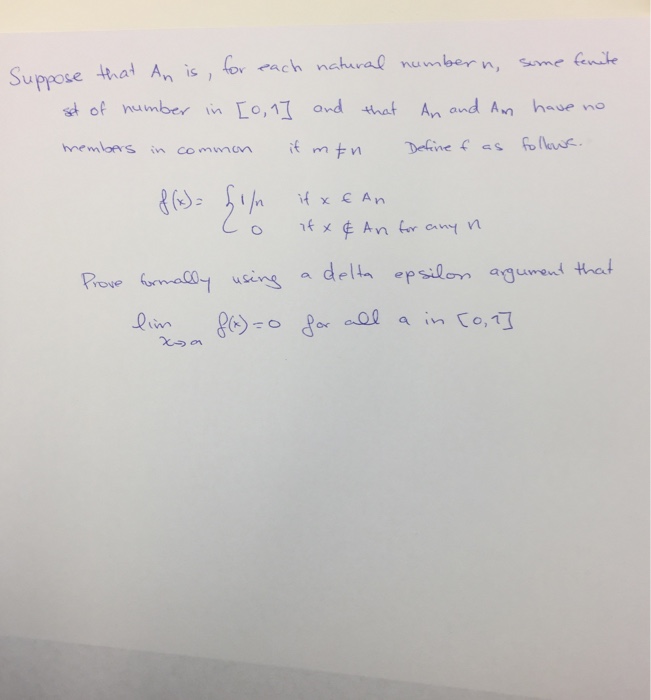 Suppose that An is, for each natural number n, some finite
set of number in [0,1] and that An and Am have no
members in common if m ≠ n Define f as follows.
f(x) = { 1/n if x ∈ An
0 if x ∉ An for any n
Prove formally using a delta epsilon argument that
lim f(x) = 0 for all a in [0,1]
x→a